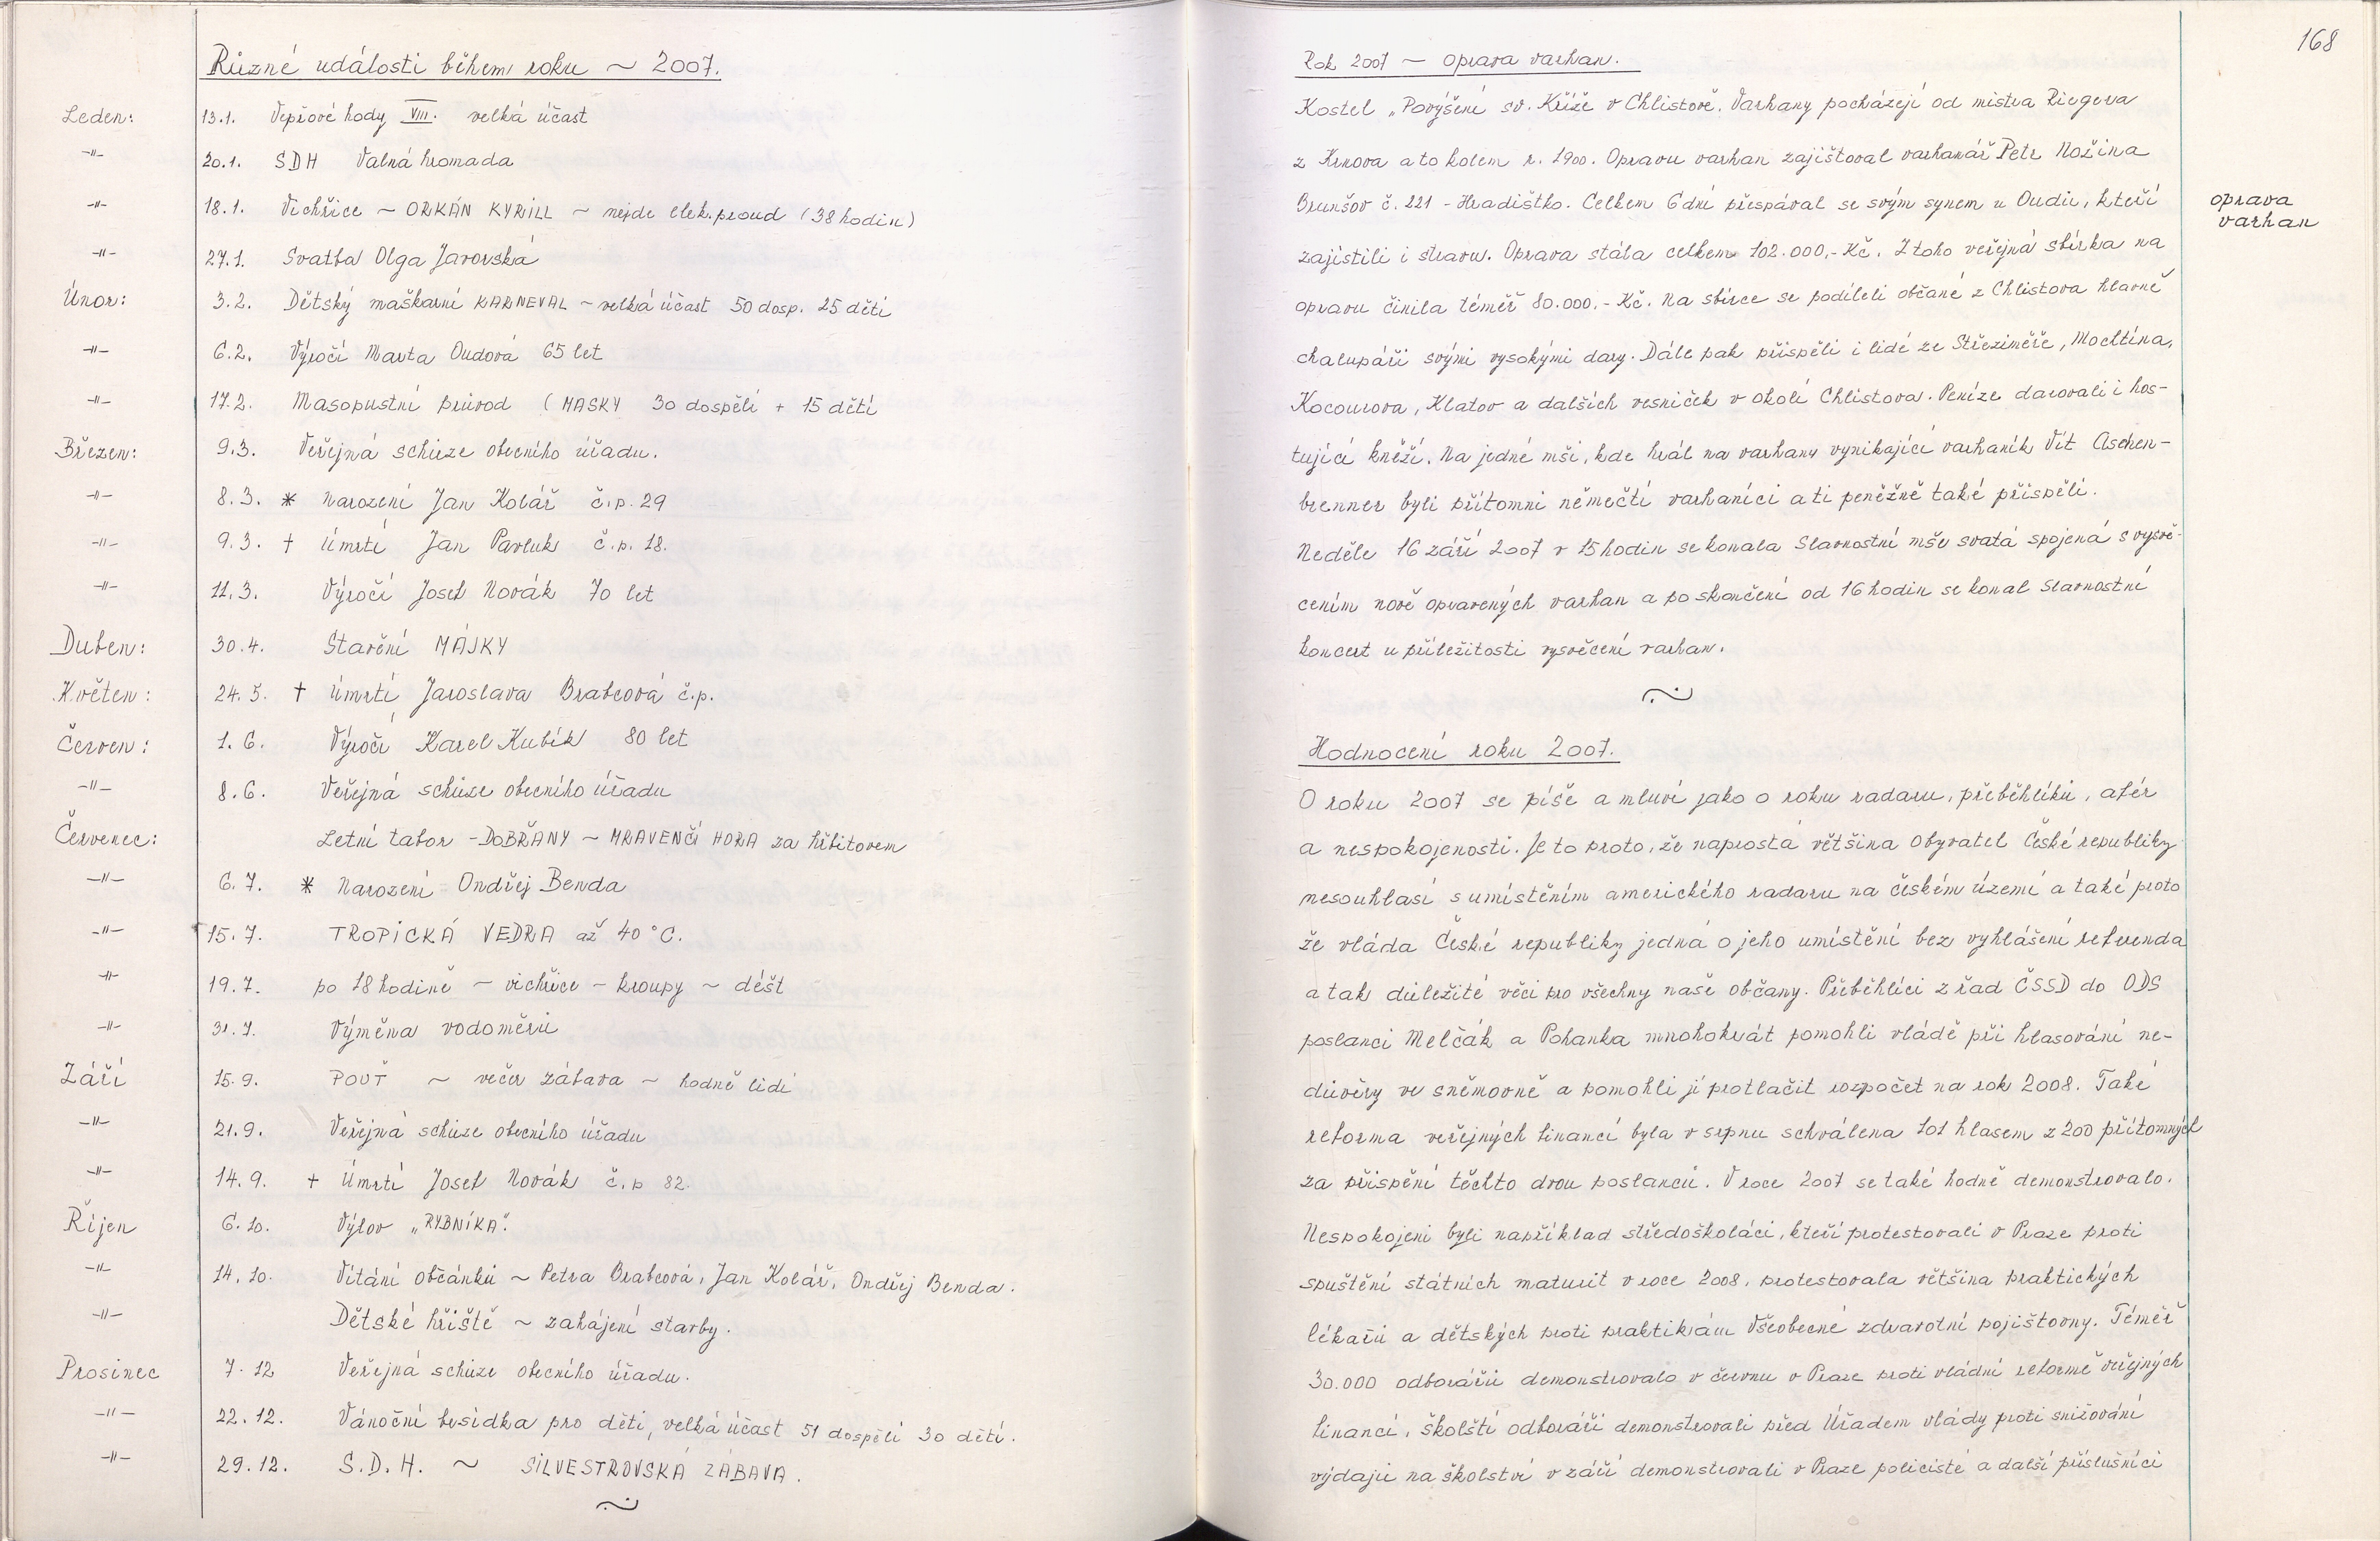 Různé události během roku ~ 2007.
Leden: 13.1. Vepřové hody VIII. velká účast
-"- 20.1. SDH Valná hromada
-"- 18.1. Vichřice ~ ORKÁN KYRILL ~ nejde elek. proud (38 hodin)
-"- 27.1. Svatba Olga Javorská
Únor: 3.2. Dětský maškarní KARNEVAL ~ velká účast 50 dosp. 25 dětí
-"- 6.2. Výročí Marta Oudová 65 let
-"- 17.2. Masopustní průvod (MASKY 30 dospělí + 15 dětí
Březen: 9.3. Veřejná schůze obecního úřadu.
-"- 8.3. * Narození Jan Kolář č.p. 29
-"- 9.3. † Úmrtí Jan Pavluk č.p. 18.
-"- 11.3. Výročí Josef Novák 70 let
Duben: 30.4. Stavění MÁJKY
Květen: 24.5. † Úmrtí Jaroslava Brabcová č.p.
Červen: 1.6. Výročí Karel Kubík 80 let
-"- 8.6. Veřejná schůze obecního úřadu
Červenec: Letní tábor - DOBŘANY ~ MRAVENČÍ HORA za hřbitovem
-"- 6.7. * Narození Ondřej Benda
-"- 15.7. TROPICKÁ VEDRA až 40°C.
-"- 19.7. po 18 hodině ~ vichřice - kroupy ~ déšť
-"- 31.7. Výměna vodoměrů
Září 15.9. POUŤ ~ večer zábava ~ hodně lidí
-"- 21.9. Veřejná schůze obecního úřadu
-"- 14.9. † Úmrtí Josef Novák č.p 82.
Říjen 6.10. Výlov „RYBNÍKA".
-"- 14.10. Vítání občánků ~ Petra Brabcová, Jan Kolář, Ondřej Benda.
-"- Dětské hřiště ~ zahájení stavby.
Prosinec 7.12 Veřejná schůze obecního úřadu.
-"- 22.12. Vánoční besídka pro děti, velká účast 51 dospělí 30 dětí.
-"- 29.12. S.D.H. ~ SILVESTROVSKÁ ZÁBAVA.
168
Rok 2007 ~ oprava varhan.
Kostel „Povýšení sv. Kříže v Chlistově. Varhany pocházejí od mistra Riegera
z Krnova a to kolem r. 1900. Opravu varhan zajišťoval varhanář Petr Nožina
Brunšov č. 221 - Hradištko. Celkem 6 dní přespával se svým synem u Oudů, kteří
oprava
varhan
zajistili i stravu. Oprava stála celkem 102.000,- Kč. Z toho veřejná sbírka na
opravu činila téměř 80.000,- Kč. Na sbírce se podíleli občané z Chlistova hlavně
chalupáři svými vysokými dary. Dále pak přispěli i lidé ze Střeziměře, Mochtína,
Kocourova, Klatov a dalších vesniček v okolí Chlistova. Peníze darovali i hos-
tující kněží. Na jedné mši, kde hrál na varhany vynikající varhaník Vít Aschen-
brenner byli přítomni němečtí varhaníci a ti peněžně také přispěli.
Neděle 16 září 2007 v 15 hodin se konala Slavnostní mše svatá spojená s vysvě-
cením nově opravených varhan a po skončení od 16 hodin se konal Slavnostní
koncert u příležitosti vysvěcení varhan.
Hodnocení roku 2007.
O roku 2007 se píše a mluví jako o roku radaru, přeběhlíků, afér
a nespokojenosti. Je to proto, že naprostá většina obyvatel České republiky
nesouhlasí s umístěním amerického radaru na českém území a také proto
že vláda České republiky jedná o jeho umístění bez vyhlášení referenda
a tak důležité věci pro všechny naše občany. Přeběhlíci z řad ČSSD do ODS
poslanci Melčák a Pohanka mnohokrát pomohli vládě při hlasování ne-
důvěry ve sněmovně a pomohli jí protlačit rozpočet na rok 2008. Také
reforma veřejných financí byla v srpnu schválena 101 hlasem z 200 přítomných
za přispění těchto dvou poslanců. V roce 2007 se také hodně demonstrovalo.
Nespokojeni byli například středoškoláci, kteří protestovali v Praze proti
spuštění státních maturit v roce 2008, protestovala většina praktických
lékařů a dětských proti praktikám Všeobecné zdravotní pojišťovny. Téměř
30.000 odborářů demonstrovalo v červnu v Praze proti vládní reformě veřejných
financí, školští odboráři demonstrovali před Úřadem vlády proti snižování
výdajů na školství v září demonstrovali v Praze policisté a další příslušníci